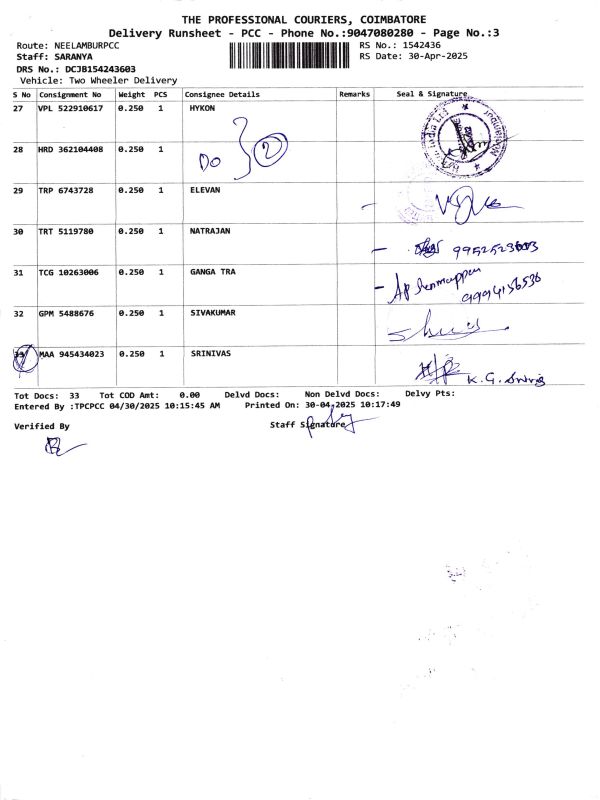 THE PROFESSIONAL COURIERS, COIMBATORE
Delivery Runsheet - PCC - Phone No.:9047080280 - Page No.:3
Route: NEELAMBURPCC
RS No.: 1542436
Staff: SARANYA
RS Date: 30-Apr-2025
DRS No.: DCJB154243603
Vehicle: Two Wheeler Delivery
S No Consignment No Weight PCS Consignee Details Remarks Seal & Signature
27 VPL 522910617 0.250 1 HYKON
28 HRD 362104408 0.250 1 DO 2
29 TRP 6743728 0.250 1 ELEVAN
30 TRT 5119780 0.250 1 NATRAJAN
31 TCG 10263006 0.250 1 GANGA TRA
32 GPM 5488676 0.250 1 SIVAKUMAR
33 MAA 945434023 0.250 1 SRINIVAS K.G.
Tot Docs: 33 Tot COD Amt: 0.00 Delvd Docs: Non Delvd Docs: Delvy Pts:
Entered By :TPCPCC 04/30/2025 10:15:45 AM Printed On: 30-04-2025 10:17:49
Verified By Staff Signature